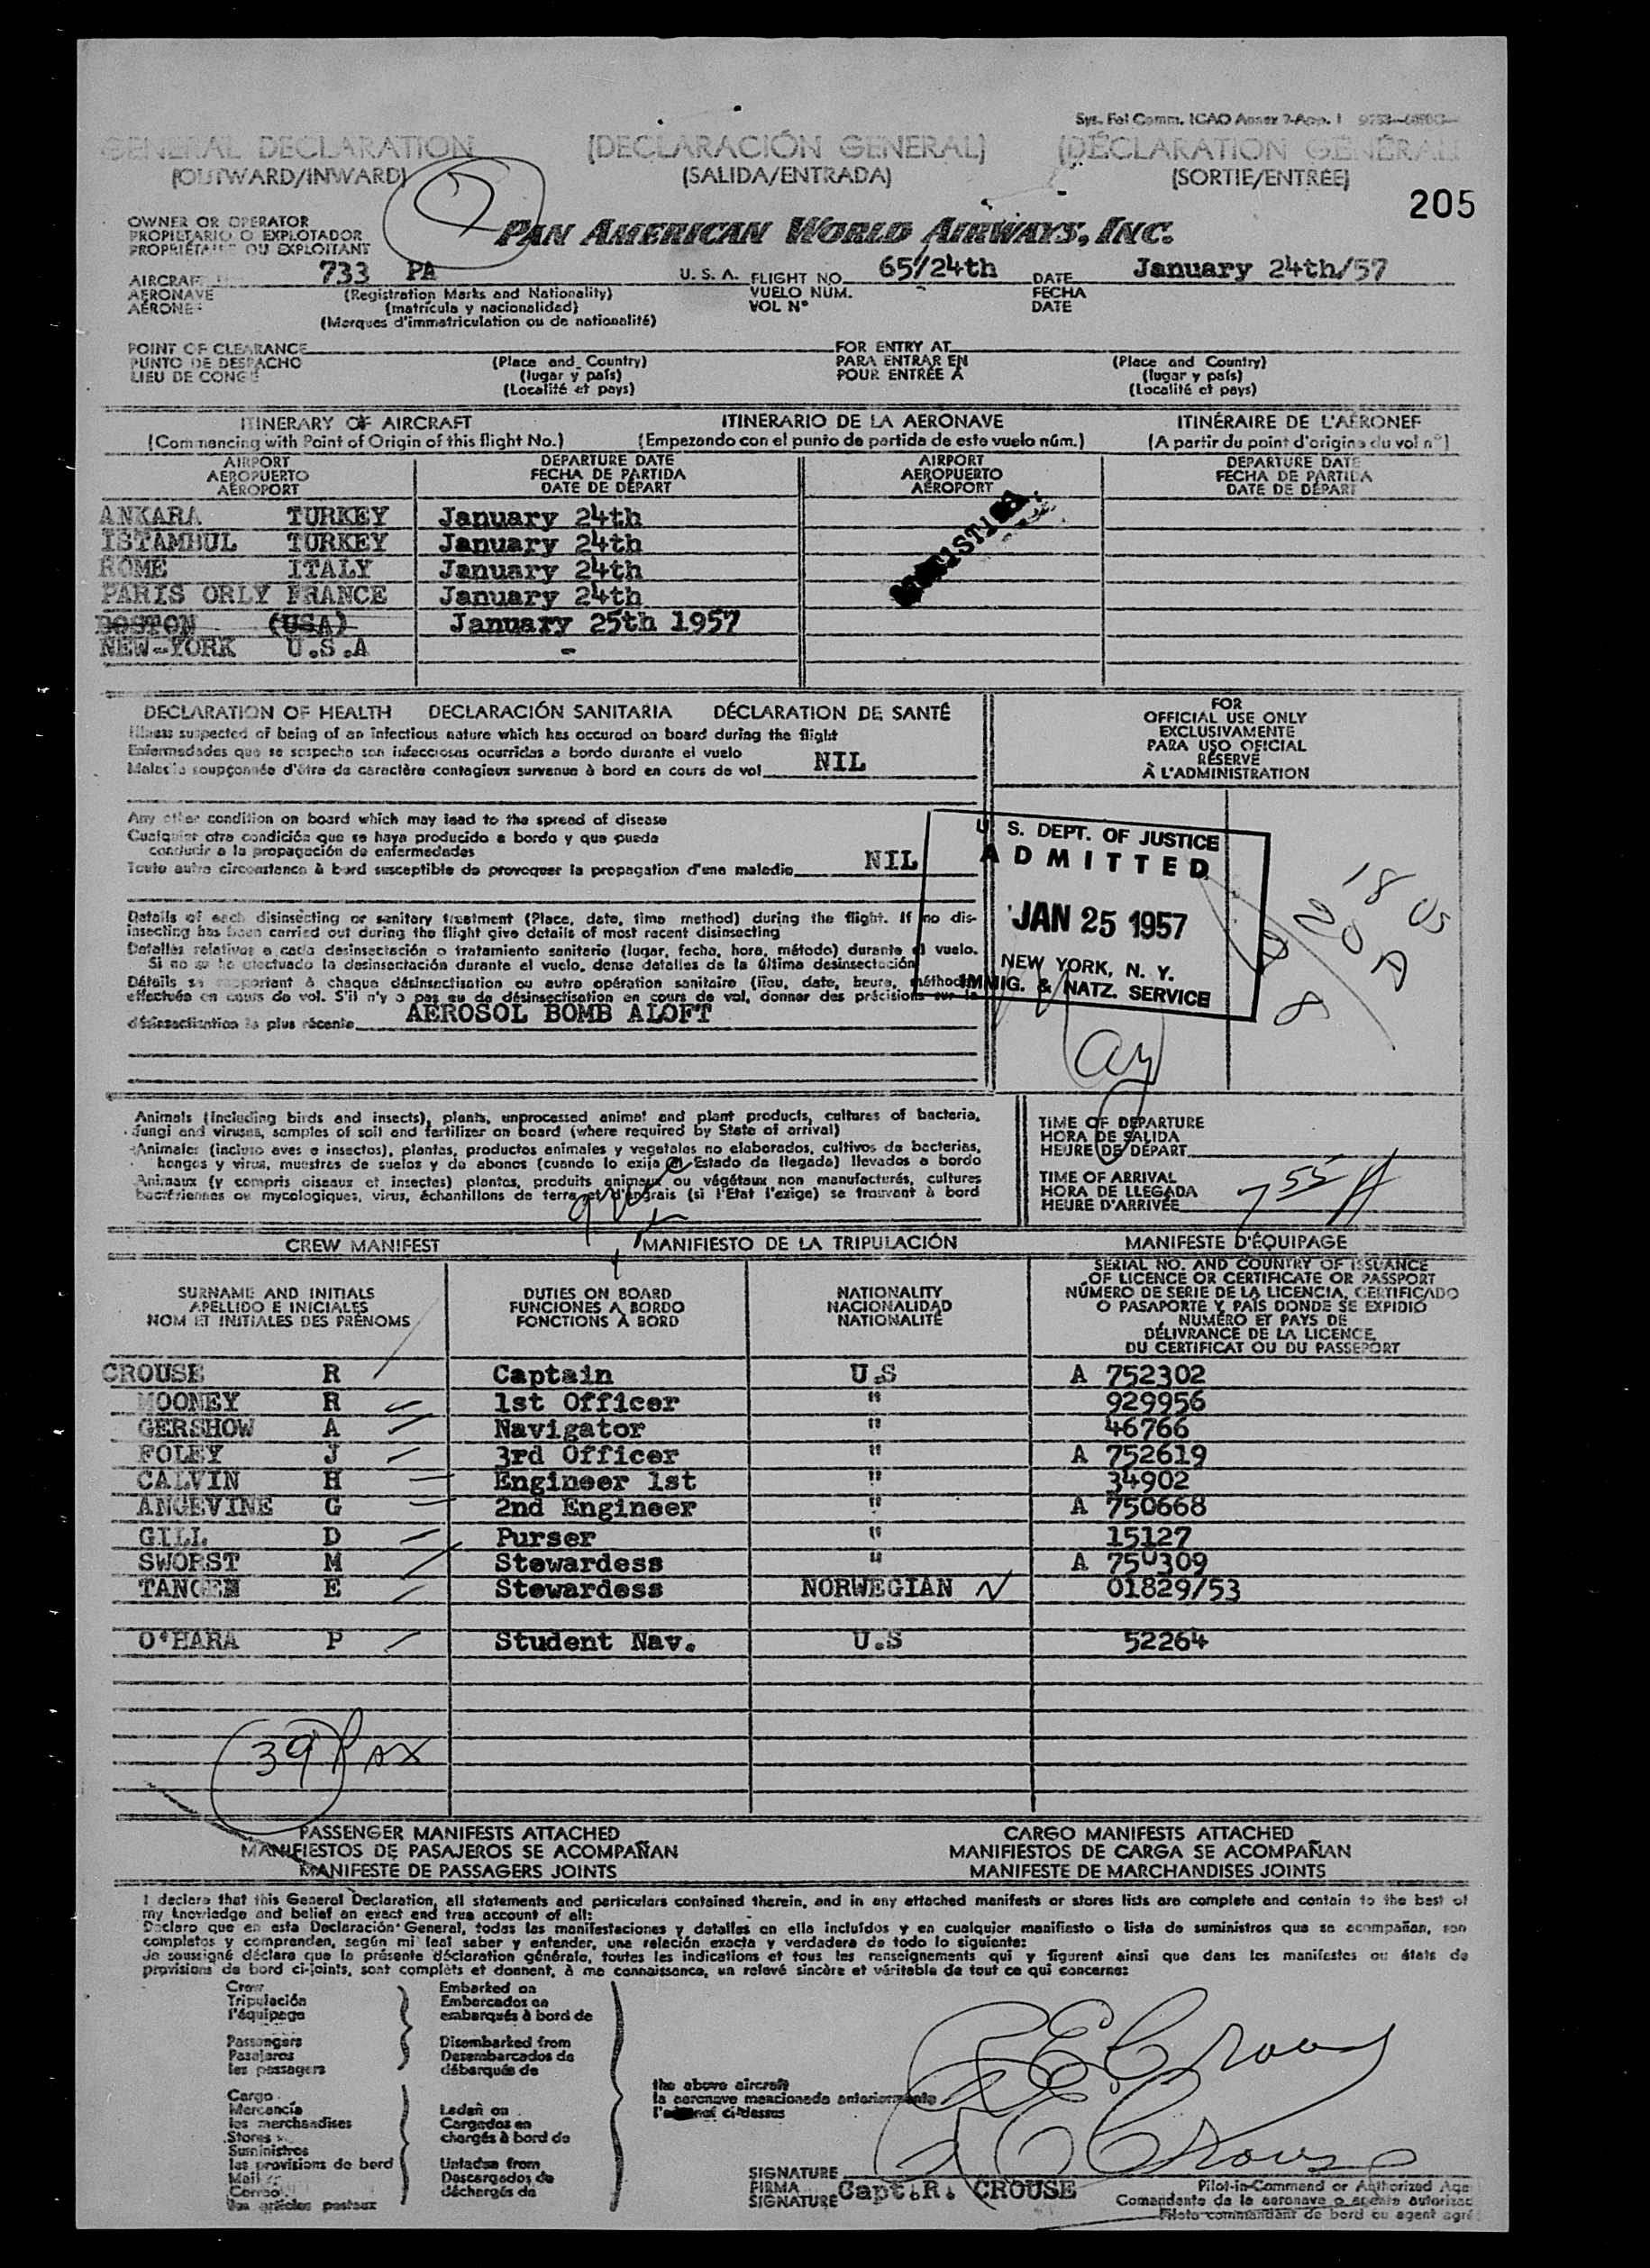 Sys. Fal Comm. ICAO Annex 7-App. I
GENERAL DECLARATION (DECLARACIÓN GENERAL) (DÉCLARATION GÉNÉRALE
(OUTWARD/INWARD) (SALIDA/ENTRADA) (SORTIE/ENTRÉE)
205
OWNER OR OPERATOR
PROPIETARIO O EXPLOTADOR
PROPRIÉTAIRE OU EXPLOITANT
PAN AMERICAN WORLD AIRWAYS, INC.
AIRCRAFT 733 PA U. S. A. FLIGHT NO. 65/24th DATE January 24th/57
AERONAVE (Registration Marks and Nationality) VUELO NÚM. FECHA
AÉRONEF (matrícula y nacionalidad) VOL N° DATE
(Marques d'immatriculation ou de nationalité)
POINT OF CLEARANCE FOR ENTRY AT
PUNTO DE DESPACHO (Place and Country) PARA ENTRAR EN (Place and Country)
LIEU DE CONGÉ (lugar y país) POUR ENTRÉE À (lugar y país)
(Localité et pays) (Localité et pays)
ITINERARY OF AIRCRAFT ITINERARIO DE LA AERONAVE ITINÉRAIRE DE L'AÉRONEF
(Commencing with Point of Origin of this flight No.) (Empezando con el punto de partida de este vuelo núm.) (A partir du point d'origine du vol n°)
AIRPORT DEPARTURE DATE AIRPORT DEPARTURE DATE
AEROPUERTO FECHA DE PARTIDA AEROPUERTO FECHA DE PARTIDA
AÉROPORT DATE DE DÉPART AÉROPORT DATE DE DÉPART
ANKARA TURKEY January 24th
ISTAMBUL TURKEY January 24th
ROME ITALY January 24th
PARIS ORLY FRANCE January 24th
BOSTON (USA) January 25th 1957
NEW-YORK U.S.A -
DECLARATION OF HEALTH DECLARACIÓN SANITARIA DÉCLARATION DE SANTÉ
Illness suspected of being of an infectious nature which has occured on board during the flight
Enfermedades que se sospecha son infecciosas ocurridas a bordo durante el vuelo
Maladie soupçonnée d'être de caractère contagieux survenue à bord en cours de vol NIL
FOR
OFFICIAL USE ONLY
EXCLUSIVAMENTE
PARA USO OFICIAL
RÉSERVÉ
À L'ADMINISTRATION
Any other condition on board which may lead to the spread of disease
Cualquier otra condición que se haya producido a bordo y que pueda
conducir a la propagación de enfermedades
Toute autre circonstance à bord susceptible de provoquer la propagation d'une maladie NIL
U. S. DEPT. OF JUSTICE
ADMITTED
JAN 25 1957
NEW YORK, N. Y.
IMMIG. & NATZ. SERVICE
18 US
20 A
Details of each disinsecting or sanitary treatment (Place, date, time method) during the flight. If no dis-
insecting has been carried out during the flight give details of most recent disinsecting
Detalles relativos a cada desinsectación o tratamiento sanitario (lugar, fecha, hora, método) durante el vuelo.
Si no se ha efectuado la desinsectación durante el vuelo, dense detalles de la última desinsectación
Détails se rapportant à chaque désinsectisation ou autre opération sanitaire (lieu, date, heure, méthode)
effectuée en cours de vol. S'il n'y a pas eu de désinsectisation en cours de vol, donner des précisions sur la
désinsectisation la plus récente AEROSOL BOMB ALOFT
Animals (including birds and insects), plants, unprocessed animal and plant products, cultures of bacteria,
fungi and viruses, samples of soil and fertilizer on board (where required by State of arrival)
Animales (incluso aves e insectos), plantas, productos animales y vegetales no elaborados, cultivos de bacterias,
hongos y virus, muestras de suelos y de abonos (cuando lo exija el Estado de llegada) llevados a bordo
Animaux (y compris oiseaux et insectes) plantes, produits animaux ou végétaux non manufacturés, cultures
bactériennes ou mycologiques, virus, échantillons de terre et d'engrais (si l'Etat l'exige) se trouvant à bord
TIME OF DEPARTURE
HORA DE SALIDA
HEURE DE DÉPART
TIME OF ARRIVAL
HORA DE LLEGADA
HEURE D'ARRIVÉE 7 55 A
CREW MANIFEST MANIFIESTO DE LA TRIPULACIÓN MANIFESTE D'ÉQUIPAGE
SURNAME AND INITIALS
APELLIDO E INICIALES
NOM ET INITIALES DES PRÉNOMS
DUTIES ON BOARD
FUNCIONES A BORDO
FONCTIONS À BORD
NATIONALITY
NACIONALIDAD
NATIONALITÉ
SERIAL NO. AND COUNTRY OF ISSUANCE
OF LICENCE OR CERTIFICATE OR PASSPORT
NÚMERO DE SERIE DE LA LICENCIA, CERTIFICADO
O PASAPORTE Y PAÍS DONDE SE EXPIDIÓ
NUMÉRO ET PAYS DE
DÉLIVRANCE DE LA LICENCE
DU CERTIFICAT OU DU PASSEPORT
CROUSE R Captain U.S A 752302
MOONEY R 1st Officer " 929956
GERSHOW A Navigator " 46766
FOLEY J 3rd Officer " A 752619
CALVIN H Engineer 1st " 34902
ANGEVINE G 2nd Engineer " A 750668
GILL D Purser " 15127
SWORST M Stewardess " A 750309
TANGEN E Stewardess NORWEGIAN N 01829/53
O'HARA P Student Nav. U.S 52264
39 PAX
PASSENGER MANIFESTS ATTACHED CARGO MANIFESTS ATTACHED
MANIFIESTOS DE PASAJEROS SE ACOMPAÑAN MANIFIESTOS DE CARGA SE ACOMPAÑAN
MANIFESTE DE PASSAGERS JOINTS MANIFESTE DE MARCHANDISES JOINTS
I declare that this General Declaration, all statements and particulars contained therein, and in any attached manifests or stores lists are complete and contain to the best of
my knowledge and belief an exact and true account of all:
Declaro que en esta Declaración General, todas las manifestaciones y detalles en ella incluídos y en cualquier manifiesto o lista de suministros que se acompañan, son
completos y comprenden, según mi leal saber y entender, una relación exacta y verdadera de todo lo siguiente:
Je soussigné déclare que la présente déclaration générale, toutes les indications et tous les renseignements qui y figurent ainsi que dans les manifestes ou états de
provisions de bord ci-joints, sont complèts et donnent, à ma connaissance, un relevé sincère et véritable de tout ce qui concerne:
Crew Embarked on
Tripulación Embarcados en
l'équipage embarqués à bord de
Passengers Disembarked from
Pasajeros Desembarcados de
les passagers débarqués de
the above aircraft
la aeronave mencionada anteriormente
l'aéronef ci-dessus
Cargo
Mercancía Laden on
les merchandises Cargados en
Stores chargés à bord de
Suministros
les provisions de bord Unladen from
Mail Descargados de
Correo déchargés de
les articles postaux
R E Crouse
R E Crouse
SIGNATURE
FIRMA
SIGNATURE Capt. R. CROUSE
Pilot-in-Command or Authorized Age
Comandante de la aeronave o agente autorizad
Pilote commandant de bord ou agent agré